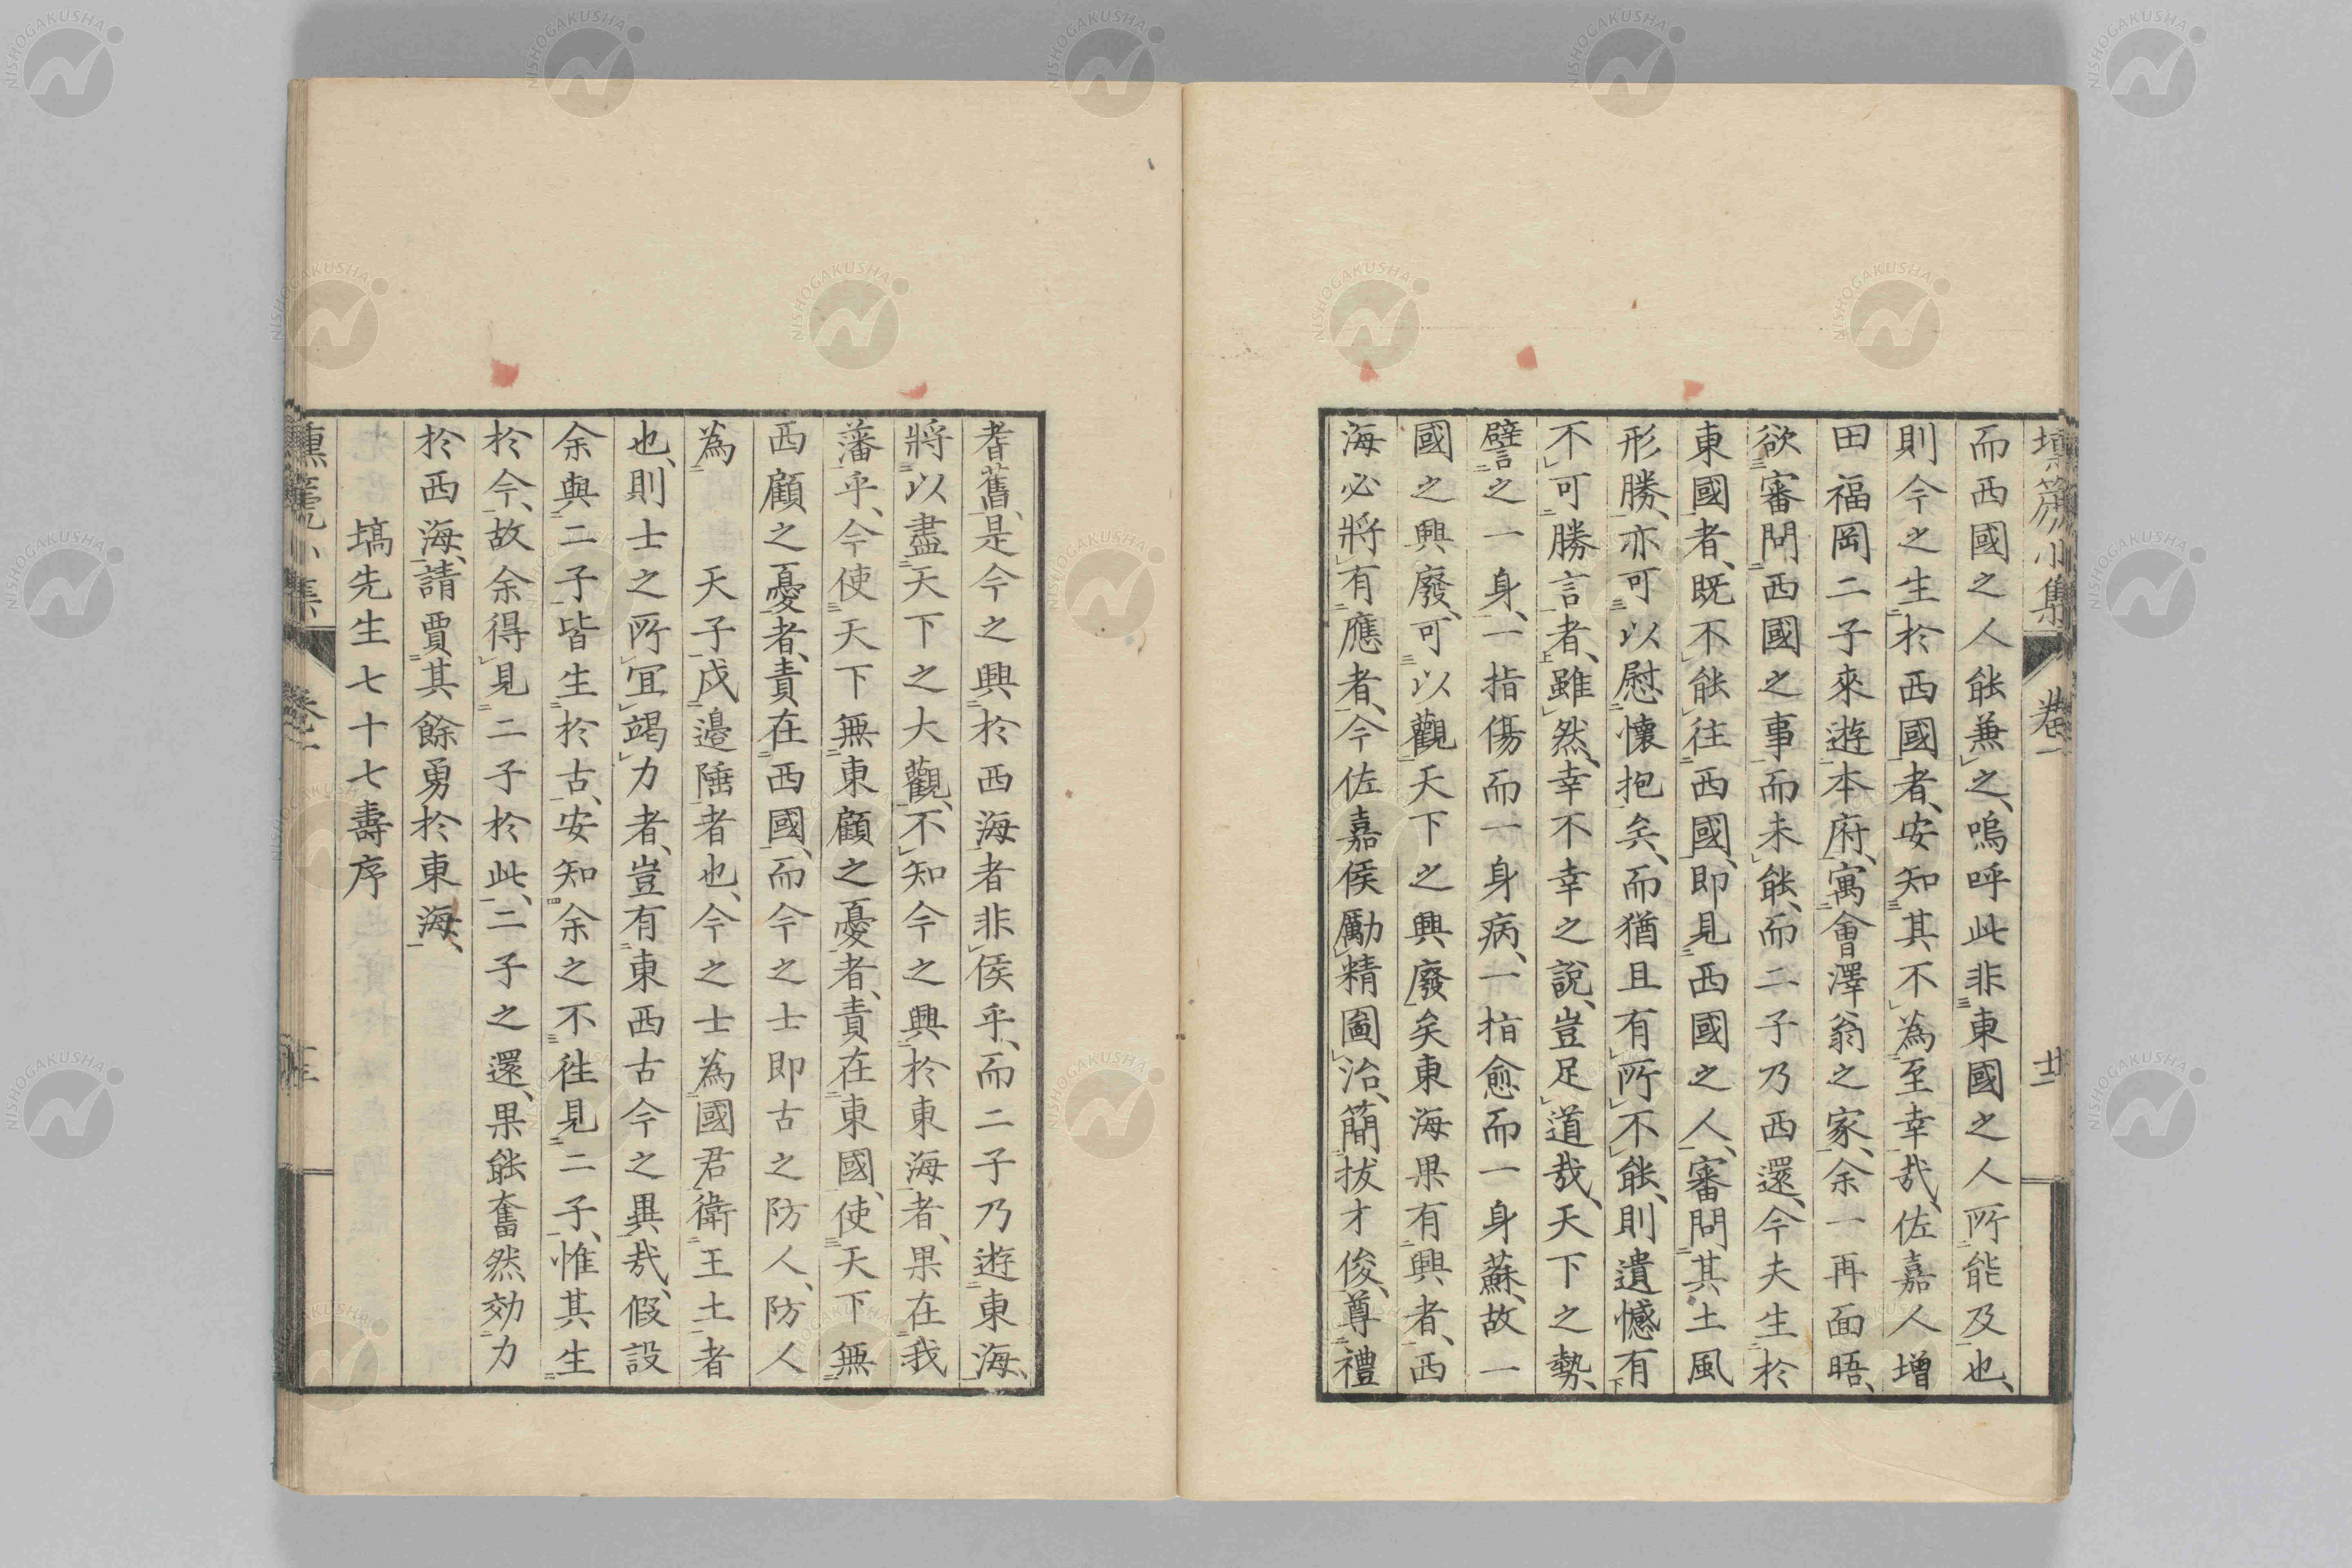 壎篪小集 卷一 廿二
而西國之人能兼之、嗚呼此非東國之人所能及也、
則今之生於西國者、安知其不為至幸哉、佐嘉人增
田福岡二子來遊本府、寓會澤翁之家、余一再面晤、
欲審問西國之事而未能、而二子乃西還、今夫生於
東國者、既不能往西國、即見西國之人、審問其土風
形勝、亦可以慰懷抱矣、而猶且有所不能、則遺憾有
不可勝言者、雖然、幸不幸之說、豈足道哉、天下之勢、
譬之一身、一指傷而一身病、一指愈而一身蘇、故一
國之興廢、可以觀天下之興廢矣東海果有興者、西
海必將有應者、今佐嘉侯勵精圖治、簡拔才俊、尊禮
耆舊、是今之興於西海者非侯乎、而二子乃遊東海、
將以盡天下之大觀、不知今之興於東海者、果在我
藩乎、今使天下無東顧之憂者、責在東國、使天下無
西顧之憂者、責在西國、而今之士即古之防人、防人
為 天子戍邊陲者也、今之士為國君衛王土者
也、則士之所宜竭力者、豈有東西古今之異哉、假設
余與二子皆生於古、安知余之不徃見二子、惟其生
於今、故余得見二子於此、二子之還、果能奮然効力
於西海、請賈其餘勇於東海、
塙先生七十七壽序
壎篪小集 卷一
NISHOGAKUSHA